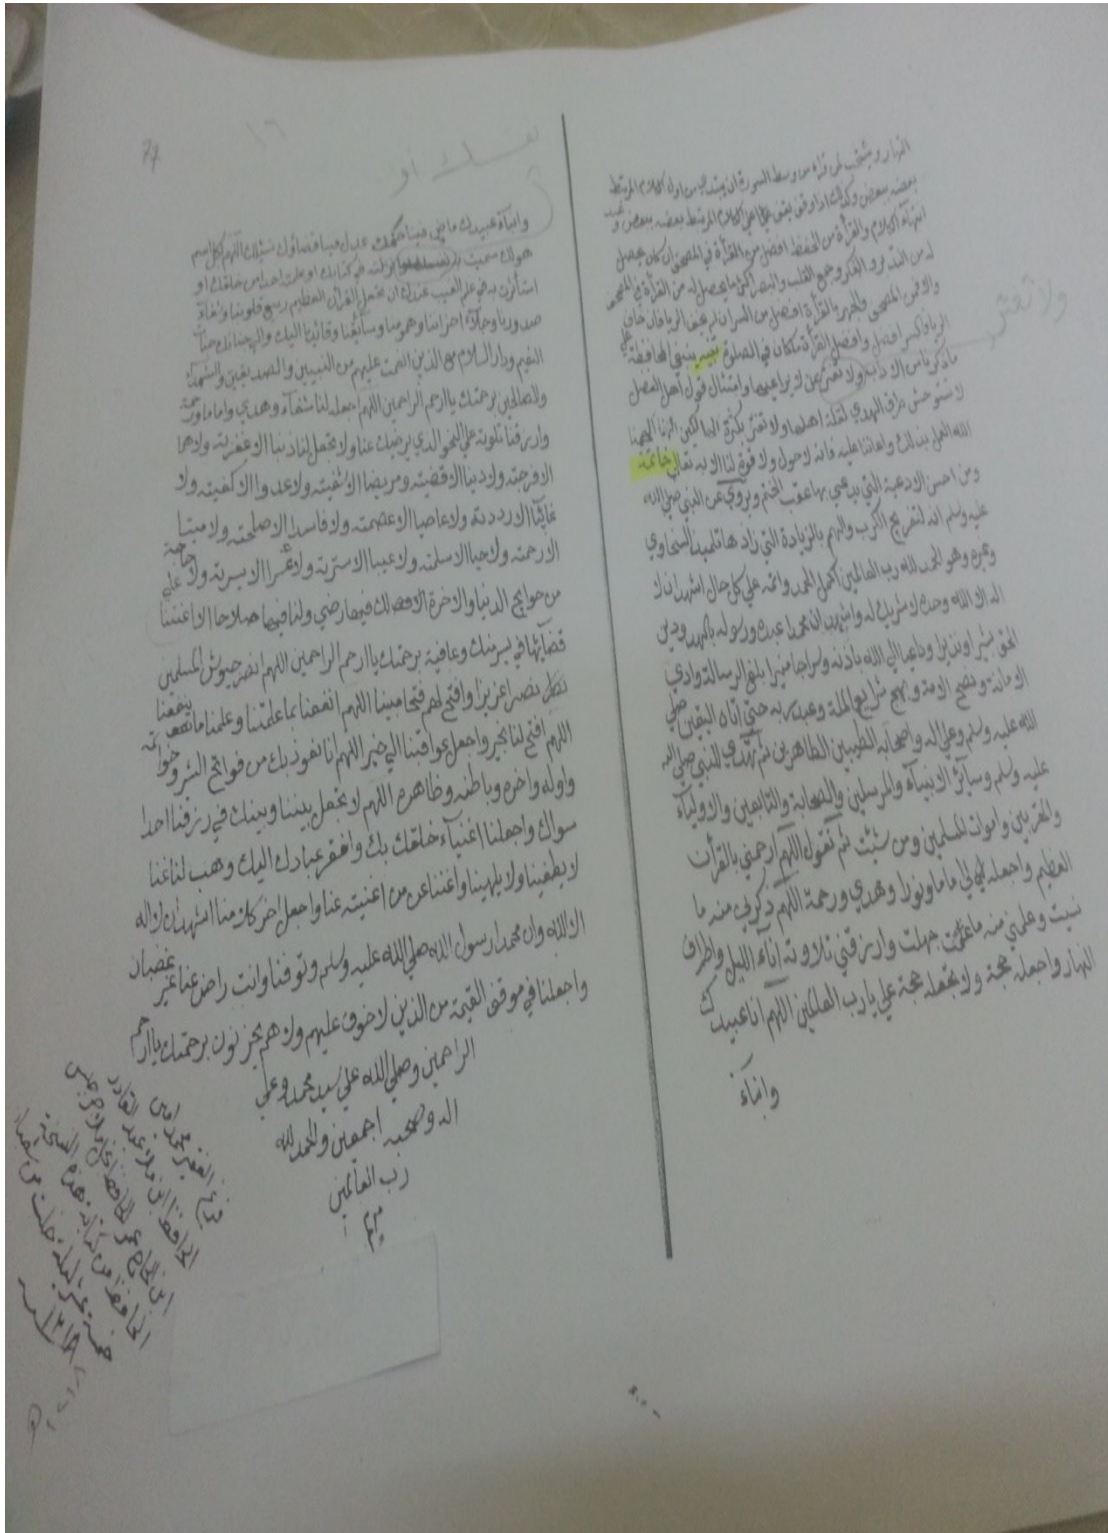 النهار ويستحب لمن قراء من وسط السورة ان يبتدي من اول الكلام المرتبط
بعضه ببعض وكذلك اذا وقف يقف علي الكلام المرتبط بعضه ببعض وعند
انتهاء الكلام والقرأة من الحفظ افضل من القرأة في المصحف ان كان يحصل
له من التدبر والفكر وجمع القلب والبصر اكثر ما يحصل له من القرأة في المصحف
والا فمن المصحف والجهر والقرأة افضل من السر ان لم يخف الريا فان خاف
الريا فالسر افضل وافضل القرأة ما كان في الصلوة تنبيه ينبغي المحافظة علي
ما ذكرنا من الاداب ولا تغتر عن لا يراعيها وامتثال قول اهل الفضل
لا تستوحش طرق الهدي لقلة اهلها ولا تغتر بكثرة الهالكين
الله العمل بذلك واعاننا عليه فانه لا حول ولا قوة لنا الا به تعالي خاتمة
ومن احسن الادعية التي يدعي بها عقب الختم ويروي عن النبي صلي الله
عليه وسلم انه لتفريج الكرب والهم بالزيادة التي زادها تلميذ السخاوي
وغيره وهو الحمد لله رب العالمين اكمل الحمد واتمه علي كل حال اشهد ان لا
اله الا الله وحده لا شريك له واشهد ان محمدا عبده ورسوله بالهدي ودين
الحق بشيرا ونذيرا وداعيا الي الله باذنه وسراجا منيرا بلغ الرسالة وادي
الامانة ونصح الامة ونهج شرايع الملة وعبد ربه حتي اتاه اليقين صلي
الله عليه وسلم وعلي اله واصحابه الطيبين الطاهرين ثم تهدي للنبي صلي الله
عليه وسلم وسائر الانبيآء والمرسلين والصحابة والتابعين والاوليآء
والمقربين واموات المسلمين ومن شئت ثم تقول اللهم ارحمني بالقرأن
العظيم واجعله لي اماما ونورا وهدي ورحمة اللهم ذكرني منه ما
نسيت وعلمني منه ما جهلت وارزقني تلاوته اناء الليل واطراف
النهار واجعله حجة ولا تجعله حجة علي يا رب العالمين اللهم انا عبيدك
وابناء
ولا تغتر
٧٧
١٦
وابناء عبيدك ماض فينا حكمك عدل فينا قضاؤك نسئلك اللهم بكل اسم
هو لك سميت به نفسك او انزلته في كتابك او علمته احدا من خلقك او
استأثرت به في علم الغيب عندك ان تجعل القرأن العظيم ربيع قلوبنا وشفآء
صدورنا وجلآء احزاننا وهمومنا وسآئقنا وقائدنا اليك والي جناتك جنات
النعيم ودار السلام مع الذين انعمت عليهم من النبيين والصديقين والشهدآء
والصالحين برحمتك يا ارحم الراحمين اللهم اجعله لنا شفآء وهدي واماما ورحمة
وارزقنا تلاوته علي النحو الذي يرضيك عنا ولا تجعل لنا ذنبا الا غفرته ولا هما
الا فرجته ولا دينا الا قضيته ومريضا الا شفيته ولا عدوا الا كفيته ولا
غائبا الا رددته ولا عاصيا الا عصمته ولا فاسدا الا اصلحته ولا ميتا
الا رحمته ولا عيبا الا سترته ولا عسرا الا يسرته ولا حاجة
من حوايج الدنيا والاخرة لك فيها رضي ولنا فيها صلاحا الا اعنتنا علي
قضآئها في يسر منك وعافية برحمتك يا ارحم الراحمين اللهم انصر جيوش المسلمين
نصرا عزيزا وافتح لهم فتحا مبينا اللهم انفعنا بما علمتنا وعلمنا ما ينفعنا
اللهم افتح لنا بخير واجعل عواقبنا الي خير اللهم انا نعوذ بك من فواتح الشر وخواتمه
واوله واخره وباطنه وظاهره اللهم لا تجعل بيننا وبينك في رزقنا احدا
سواك واجعلنا اغنيآء خلقك بك وافقر عبادك اليك وهب لنا غنا
لا يطغينا ولا يلهينا واغننا عن من اغنيته عنا واجعل اخر كلامنا اشهد ان لا اله
الا الله وان محمدا رسول الله صلي الله عليه وسلم وتوفنا وانت راض عنا غير غضبان
واجعلنا في موقف القيمة من الذين لا خوف عليهم ولا هم يحزنون برحمتك يا ارحم
الراحمين وصلي الله علي سيد محمد وعلي
اله وصحبه اجمعين والحمد لله
رب العالمين
الفقير محمد امين
الحافظ ابن ملا عبد القادر
الحافظ من كتابة هذه النسخة
خمسة عشر ليلة خلت من